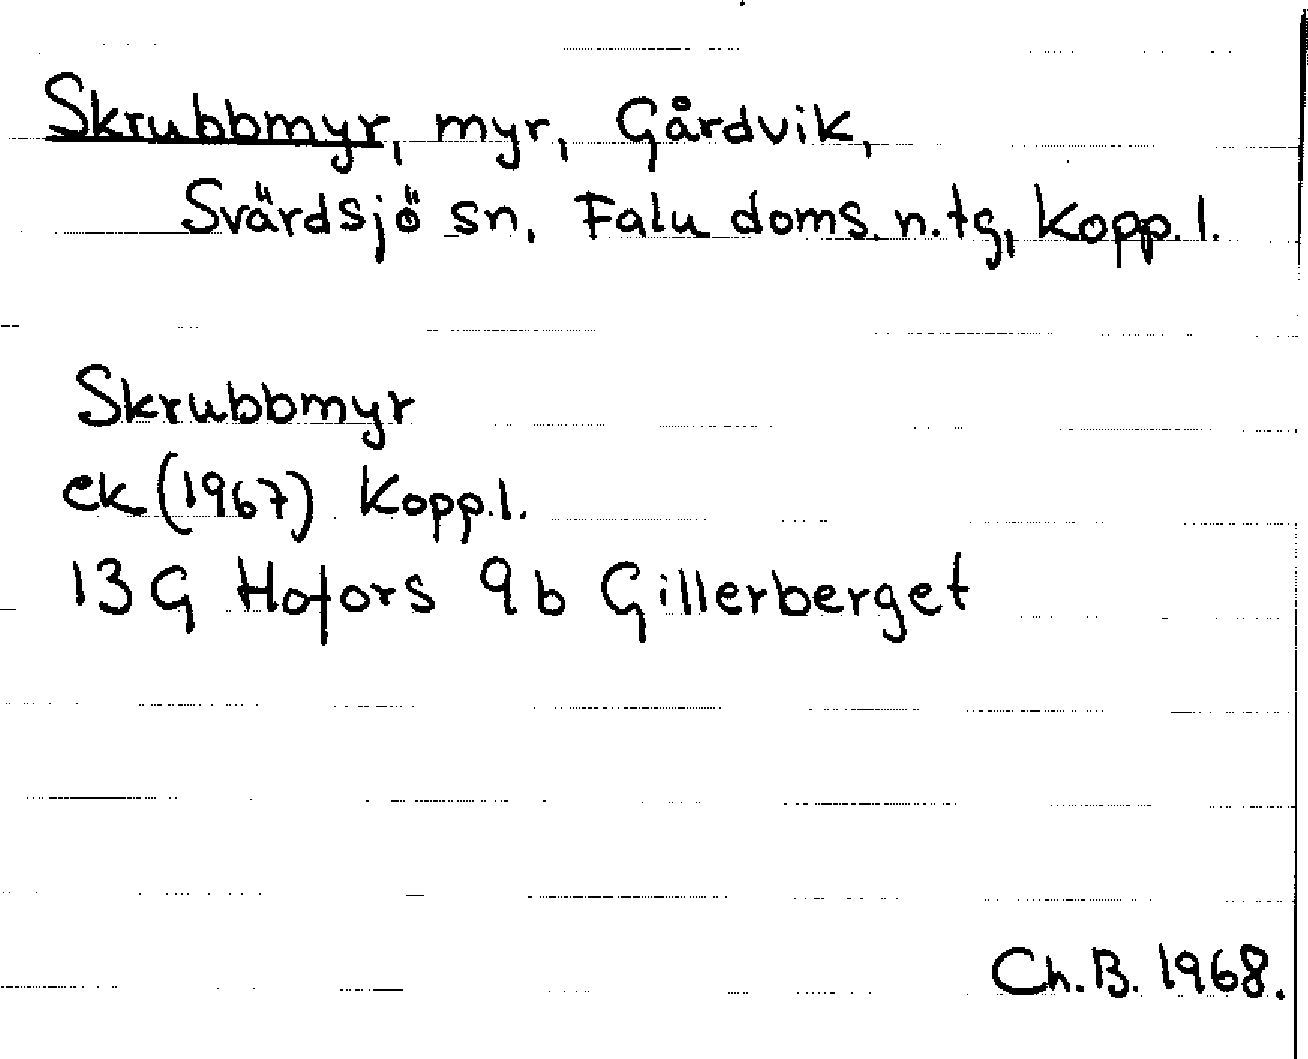 Skrubbmyr, myr, Gårdvik,
Svärdsjö sn, Falu doms. n. tg, Kopp. l.
Skrubbmyr
ek (1967) Kopp. l.
13G Hofors 9b Gillerberget
Ch. B. 1968.